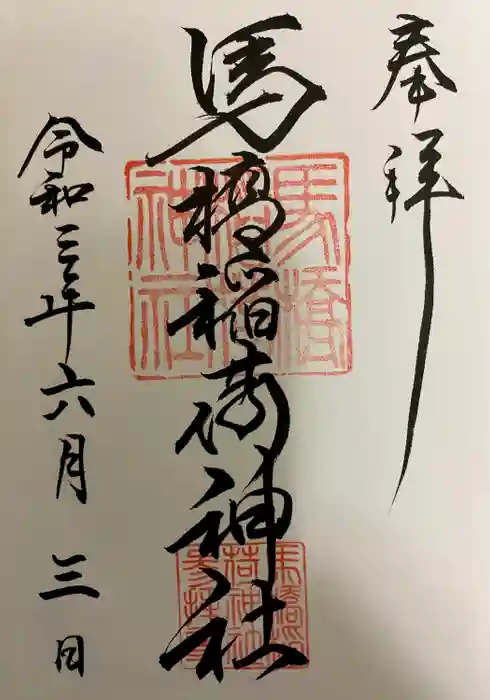 奉拝
馬橋稲荷神社
令和三年六月三日
馬橋稲荷神社